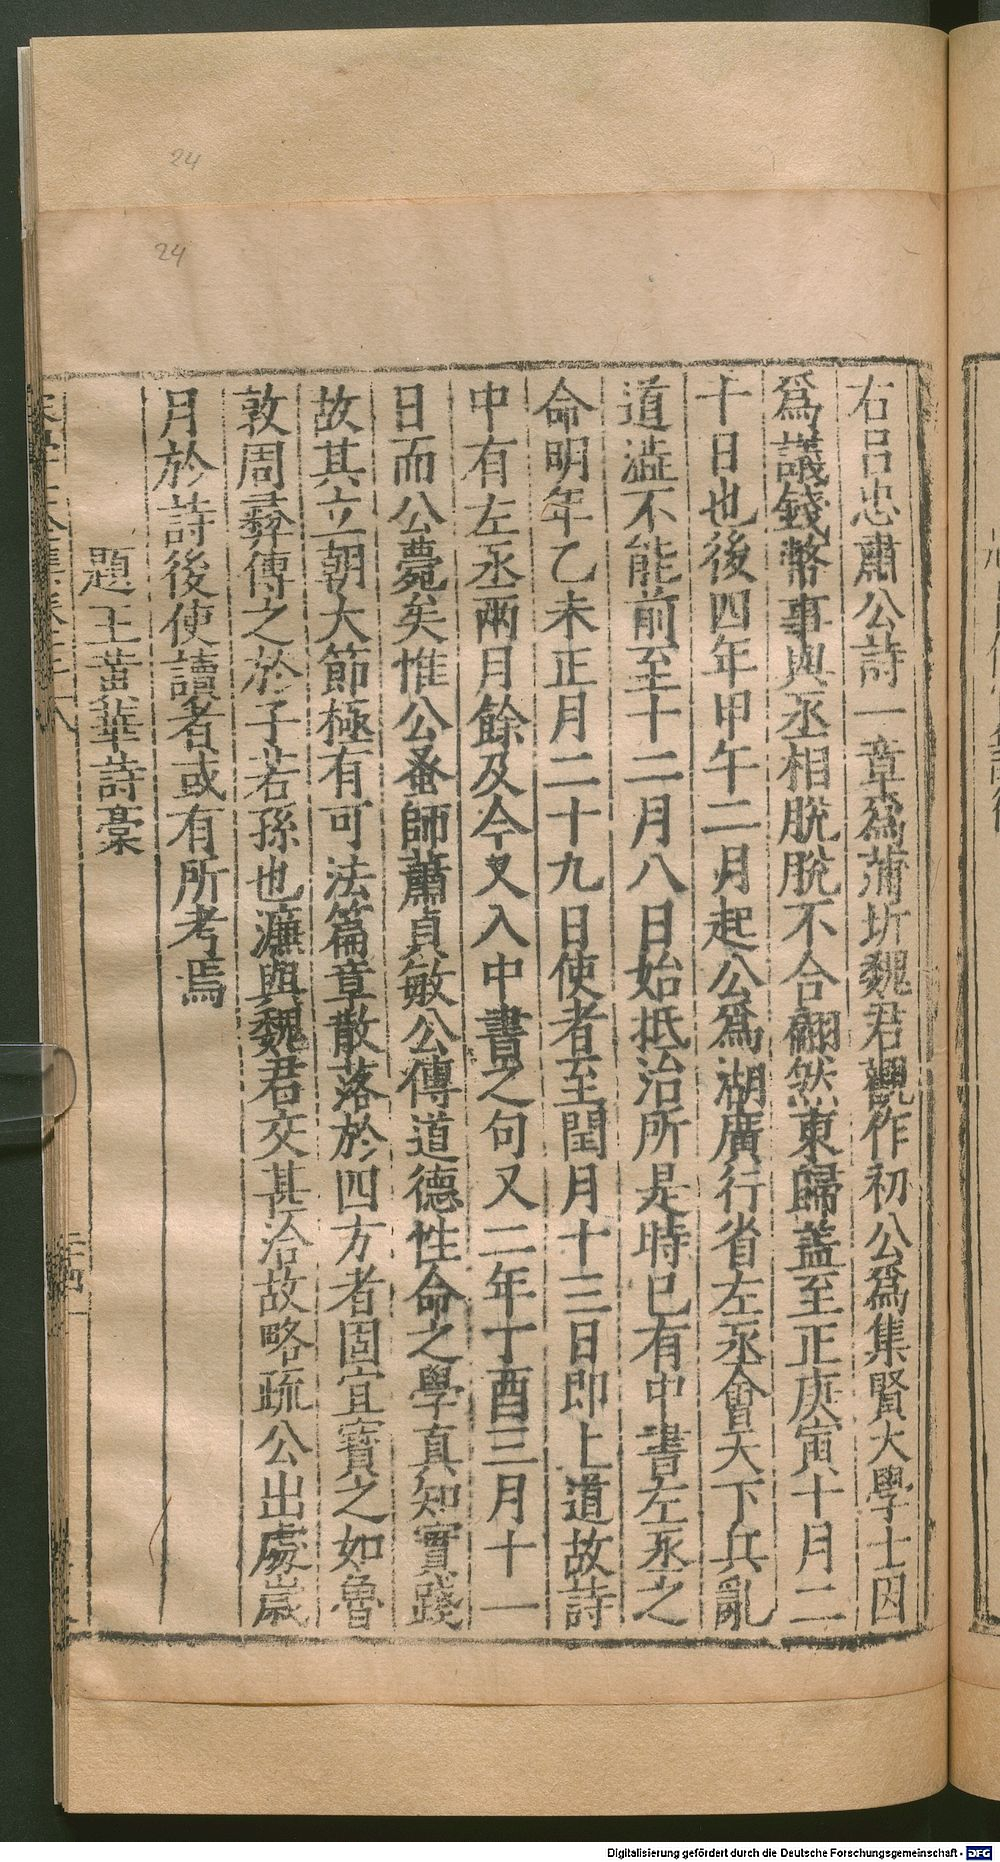 24
24
右吕忠肅公詩一章為蒲圻魏君觀作初公為集賢大學士因
為議錢幣事與丞相脫脫不合翩然東歸盖至正庚寅十月二
十日也後四年甲午二月起公為湖廣行省左丞會天下兵亂
道澁不能前至十二月八日始抵治所是時已有中書左丞之
命明年乙未正月二十九日使者至閏月十三日即上道故詩
中有左丞兩月餘及今又入中書之句又二年丁酉三月十一
日而公薨矣惟公蚤師蕭貞敏公傳道德性命之學真知實踐
故其立朝大節極有可法篇章散落於四方者固宜寶之如魯
敦周彞傳之於子若孫也濂與魏君交甚洽故略疏公出處歲
月於詩後使讀者或有所考焉
題王蕐詩槀
Digitalisierung gefördert durch die Deutsche Forschungsgemeinschaft - DFG